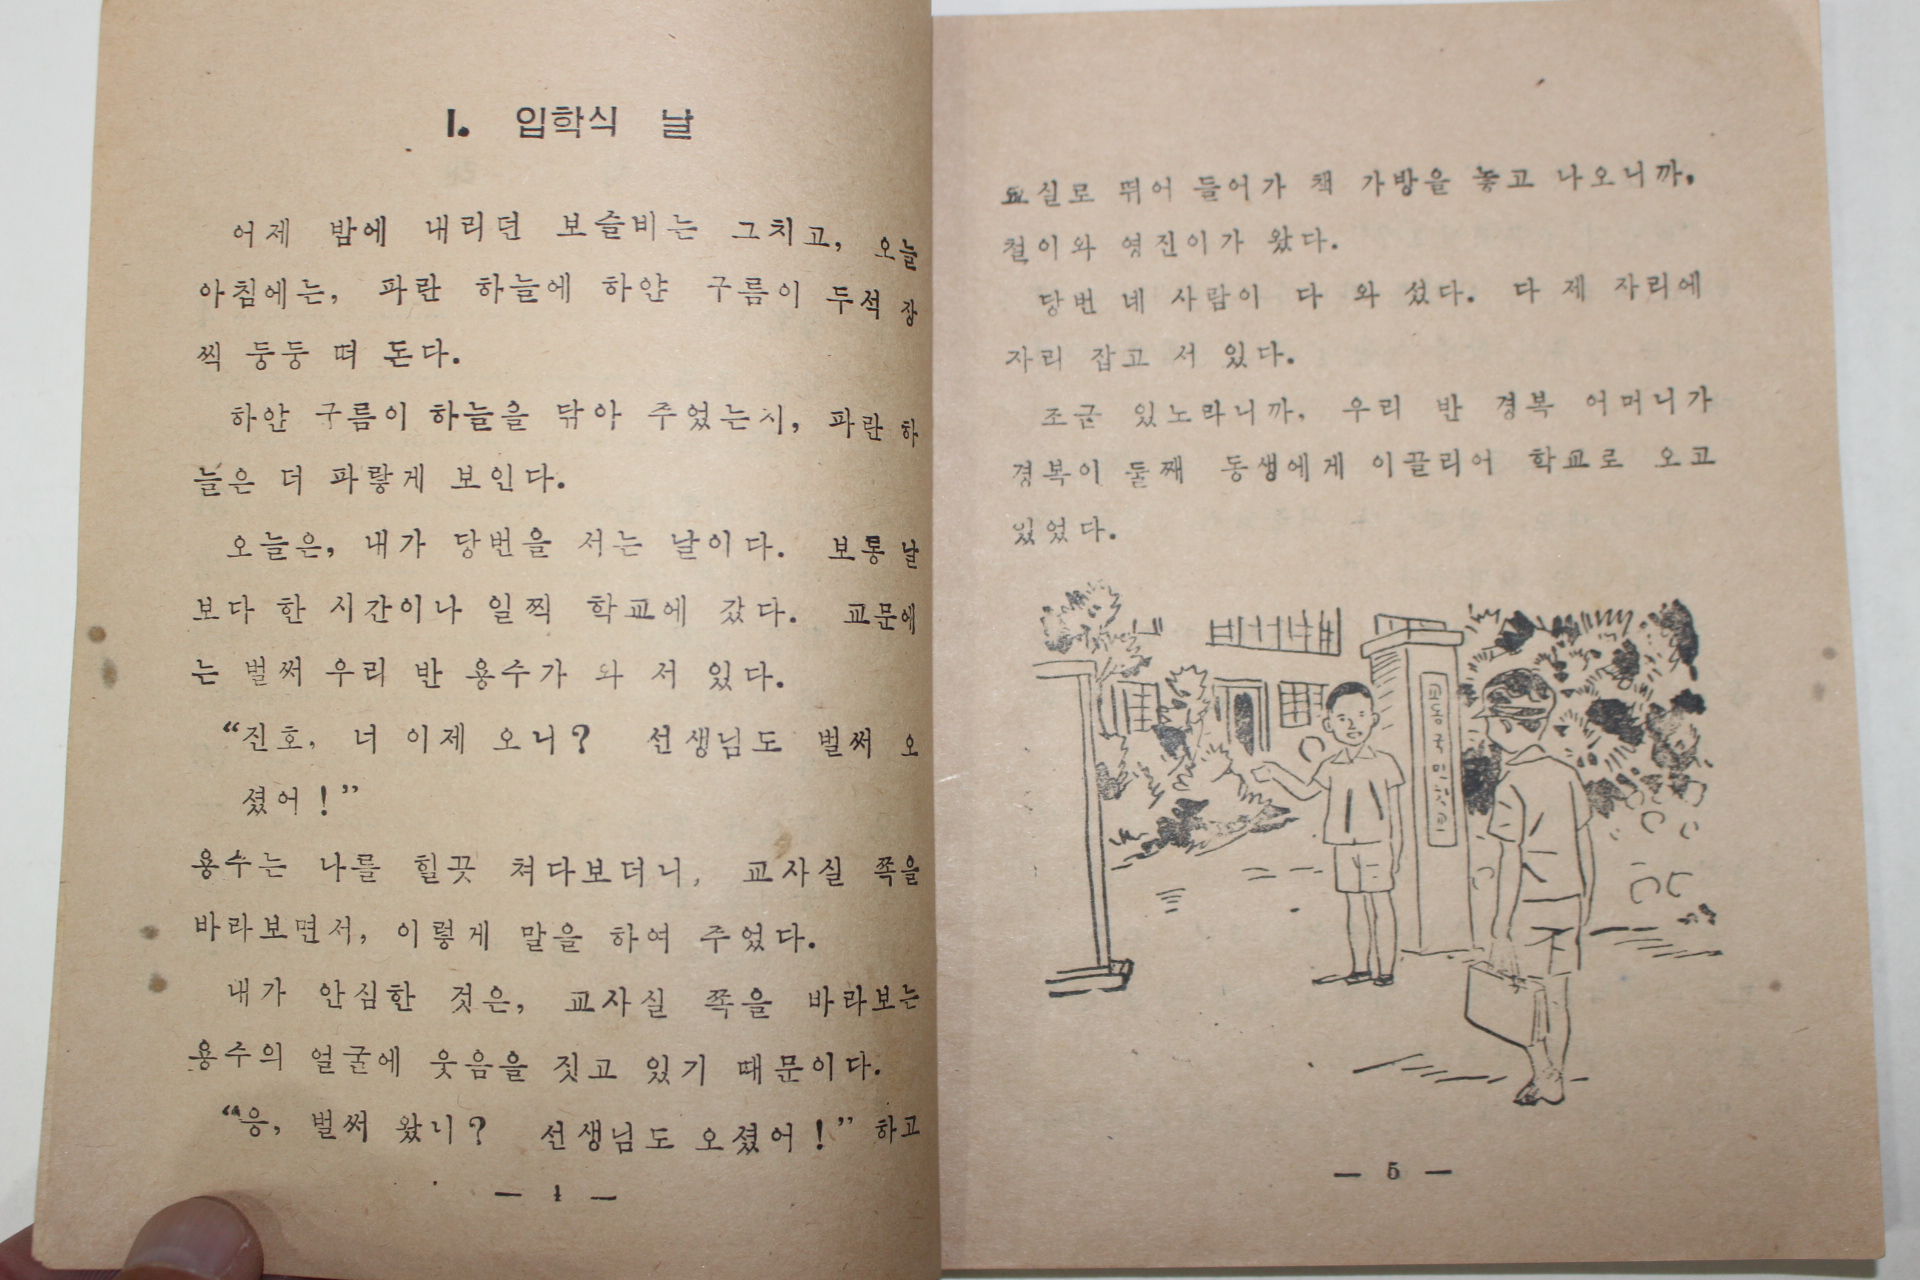 1. 입학식 날
어제 밤에 내리던 보슬비는 그치고, 오늘
아침에는, 파란 하늘에 하얀 구름이 두석 장
찍 둥둥 떠 돈다.
하얀 구름이 하늘을 닦아 주었는지, 파란 하
늘은 더 파랗게 보인다.
오늘은, 내가 당번을 서는 날이다. 보통 날
보다 한 시간이나 일찍 학교에 갔다. 교문에
는 벌써 우리 반 용수가 와 서 있다.
“진호, 너 이제 오니? 선생님도 벌써 오
셨어!”
용수는 나를 힐끗 쳐다보더니, 교사실 쪽을
바라보면서, 이렇게 말을 하여 주었다.
내가 안심한 것은, 교사실 쪽을 바라보는
용수의 얼굴에 웃음을 짓고 있기 때문이다.
“응, 벌써 왔니? 선생님도 오셨어!” 하고
— 4 —
교실로 뛰어 들어가 책 가방을 놓고 나오니까,
철이와 영진이가 왔다.
당번 네 사람이 다 와 섰다. 다 제 자리에
자리 잡고 서 있다.
조금 있노라니까, 우리 반 경복 어머니가
경복이 둘째 동생에게 이끌리어 학교로 오고
있었다.
국민
— 5 —